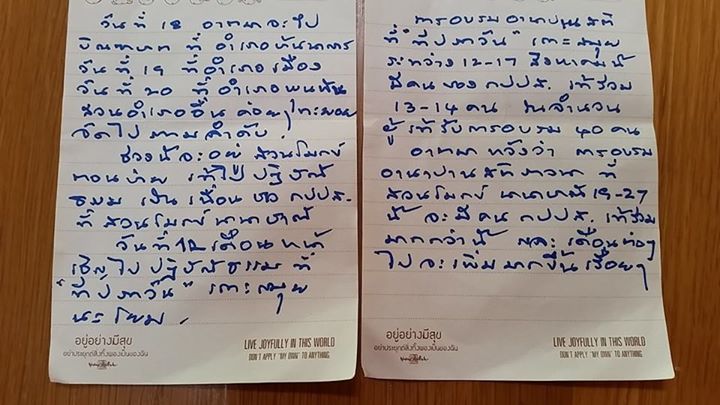 วันที่ 18 อาตมาจะไป
บิณฑบาต ที่ อำเภอทับปุด
วันที่ 19 ที่อำเภอเมือง
วันที่ 20 ที่ อำเภอพนพิน
ส่วนอำเภออื่น ค่อยๆทะยอย
จัดไป ตามลำดับ.
ช่วงนี้จะอยู่ สวนโมกข์
ที่ สวนโมกข์ นานาชาติ
วันที่ 12 เดือนหน้า
เชิญไป ปฏิบัติธรรม ที่
"ทีปภาวัน" เกาะสมุย
นะโยม.
อยู่อย่างมีสุข
อย่าประยุกต์สิ่งทั้งผองเป็นของฉัน
LIVE JOYFULLY IN THIS WORLD
DON'T APPLY "MY OWN" TO ANYTHING
การอบรม อานาปานสติ
ที่ "ทีปภาวัน" เกาะสมุย
ระหว่าง 12-17 สิงหาคมนี้
มีคน ของ กปปส. เข้าร่วม
13-14 คน ในจำนวน
ผู้เข้ารับการอบรม 40 คน
อาตมา หวังว่า การอบรม
อานาปานสติภาวนา ที่
สวนโมกข์ นานาชาติ 19-27
นี้ จะมีคน กปปส. เข้าร่วม
มากกว่านี้ และ เดือนต่อๆ
ไป จะเพิ่มมากขึ้นเรื่อยๆ
อยู่อย่างมีสุข
อย่าประยุกต์สิ่งทั้งผองเป็นของฉัน
LIVE JOYFULLY IN THIS WORLD
DON'T APPLY "MY OWN" TO ANYTHING